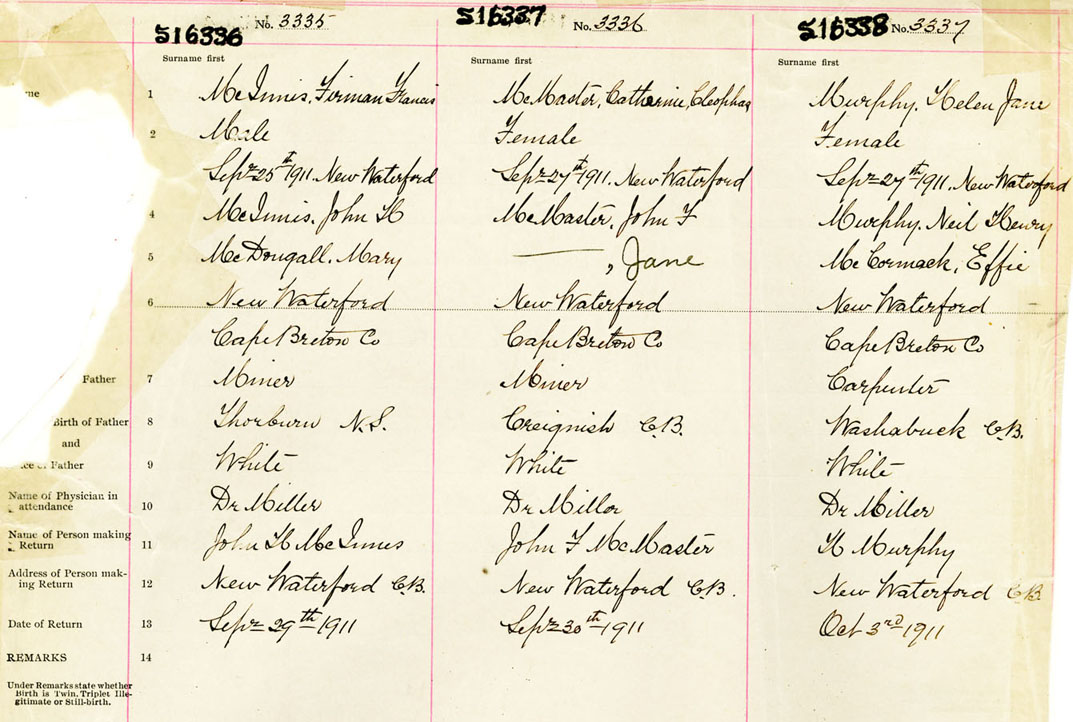 S16336 No. 3335 S16337 No. 3336 S16338 No. 3337
Surname first Surname first Surname first
1 McInnis, Firman Francis McMaster, Catherine, Cleophas Murphy, Helen Jane
2 Male Female Female
Sept 25th 1911. New Waterford Sept 27th 1911. New Waterford Sept 27th 1911. New Waterford
4 McInnis, John H McMaster, John F Murphy, Neil Henry
5 McDougall, Mary —, Jane McCormack, Effie
6 New Waterford New Waterford New Waterford
Cape Breton Co Cape Breton Co Cape Breton Co
Father 7 Miner Miner Carpenter
Birth of Father 8 Thorburn N.S. Creignish C.B. Washabuck C.B.
and
Father 9 White White White
Name of Physician in
attendance 10 Dr Miller Dr Miller Dr Miller
Name of Person making
Return 11 John H McInnis John F McMaster H Murphy
Address of Person mak-
ing Return 12 New Waterford C.B. New Waterford C.B. New Waterford C.B.
Date of Return 13 Sept 29th 1911 Sept 30th 1911 Oct 3rd 1911
REMARKS 14
Under Remarks state whether
Birth is Twin, Triplet Ille-
gitimate or Still-birth.